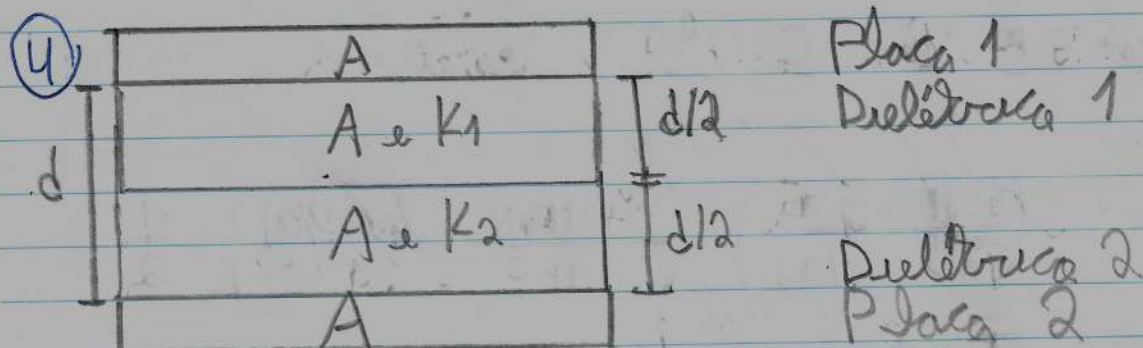 4
A Placa 1
A e K1 d/2 Dielétrico 1
d
A e K2 d/2 Dielétrico 2
A Placa 2